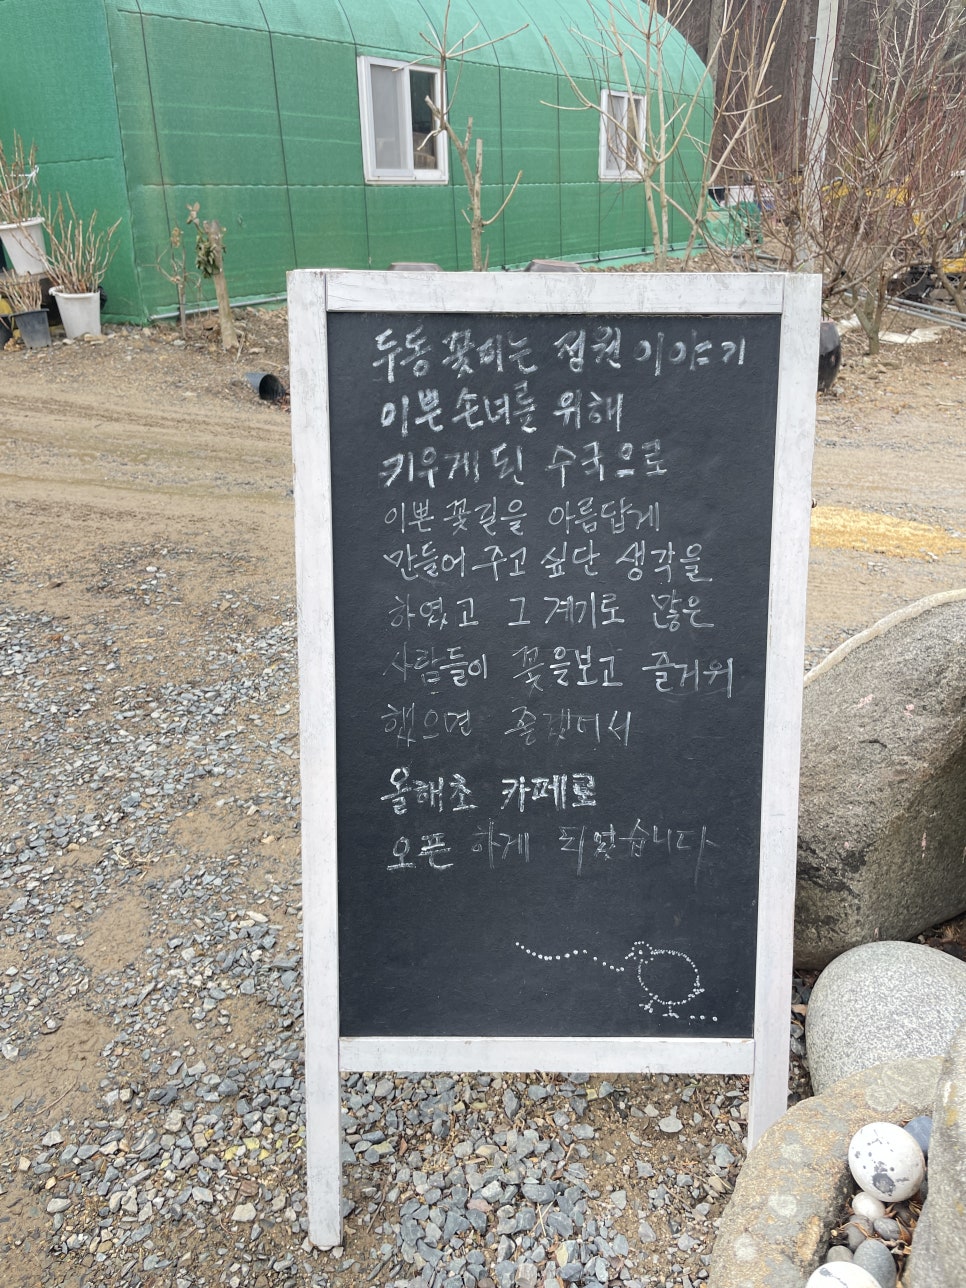 두동 꽃피는 정원 이야기
이쁜 손녀를 위해
키우게 된 수국으로
이쁜 꽃길을 아름답게
만들어 주고 싶단 생각을
하였고 그 계기로 많은
사람들이 꽃을보고 즐거워
했으면 좋겠어서
올해초 카페로
오픈 하게 되었습니다